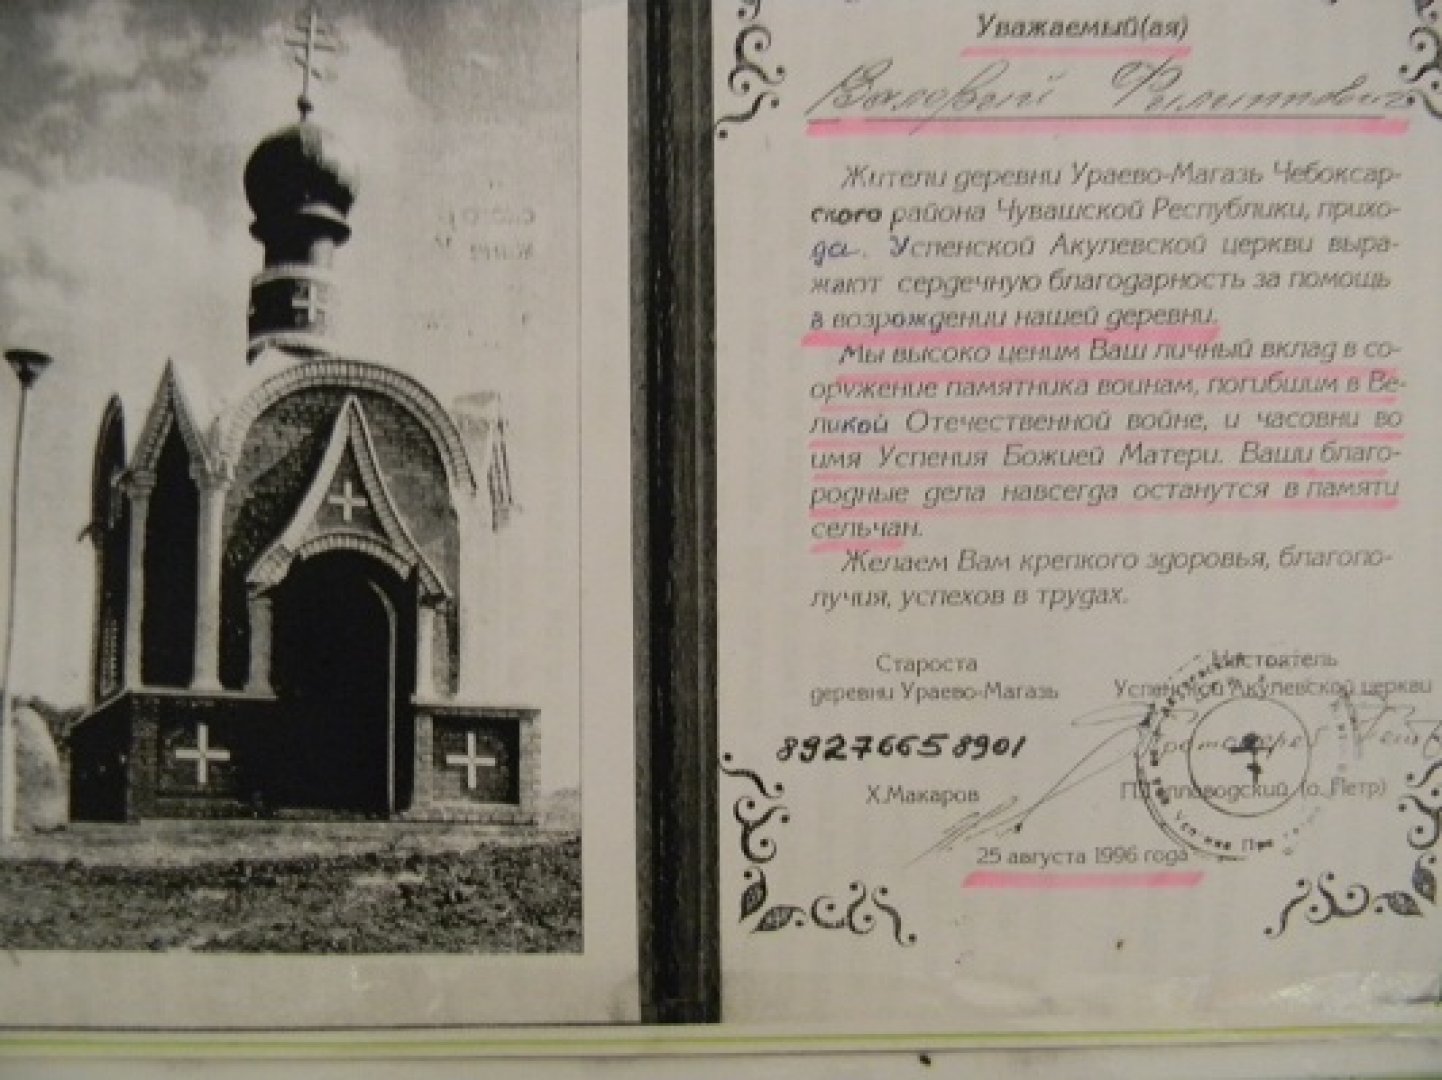 Уважаемый(ая)
Валерий Филиппович
Жители деревни Ураево-Магазь Чебоксар-
ского района Чувашской Республики, прихо-
да. Успенской Акулевской церкви выра-
жают сердечную благодарность за помощь
в возрождении нашей деревни.
Мы высоко ценим Ваш личный вклад в со-
оружение памятника воинам, погибшим в Ве-
ликой Отечественной войне, и часовни во
имя Успения Божией Матери. Ваши благо-
родные дела навсегда останутся в памяти
сельчан.
Желаем Вам крепкого здоровья, благопо-
лучия, успехов в трудах.
Староста
деревни Ураево-Магазь
89276658901
Х.Макаров
Настоятель
Успенской Акулевской церкви
(о. Петр)
25 августа 1996 года